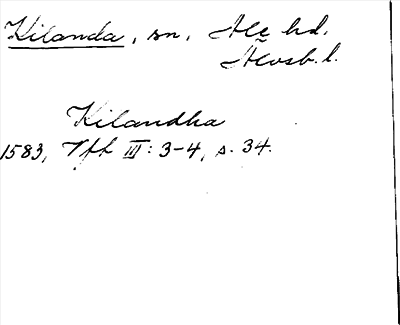 Kilanda, sn, Ale hd.
Älvsb. l.
Kilandha
1583, Vff III: 3-4, s. 34.